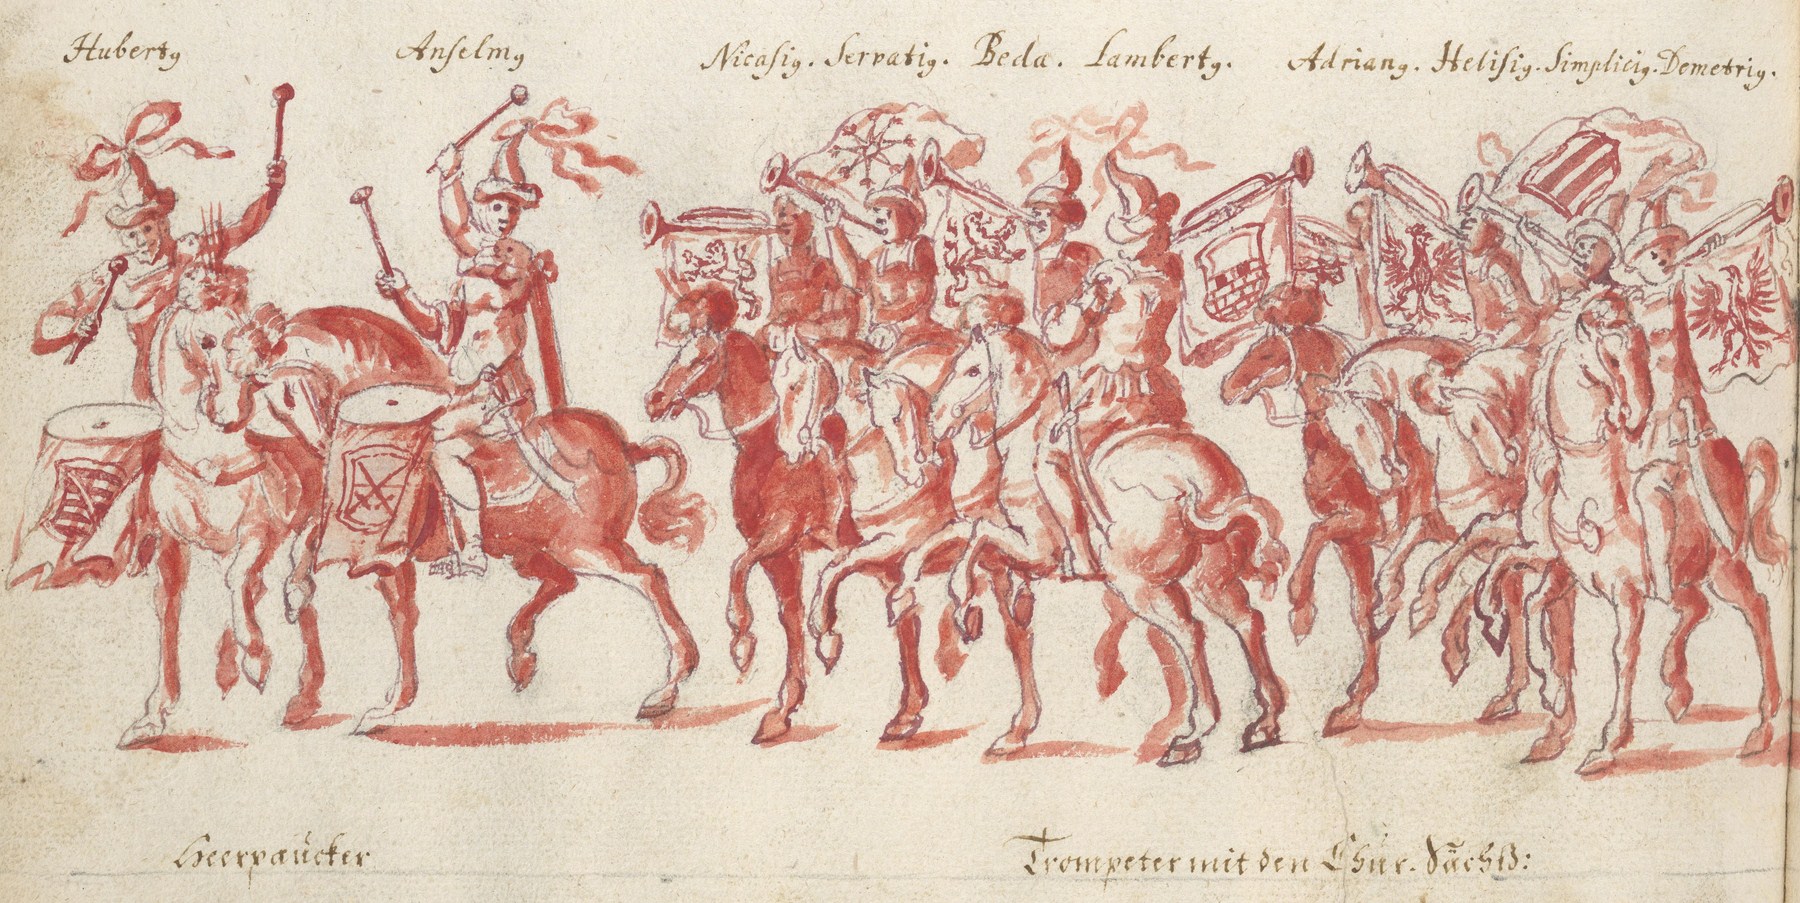 Hubertꝯ Anselmꝯ Nicasiꝯ. Servatiꝯ. Beda. Lambertꝯ. Adrianꝯ. Helisiꝯ. Simpliciꝯ. Demetriꝯ.
Heerpaücker
Trompeter mit den Chür. Sächß: